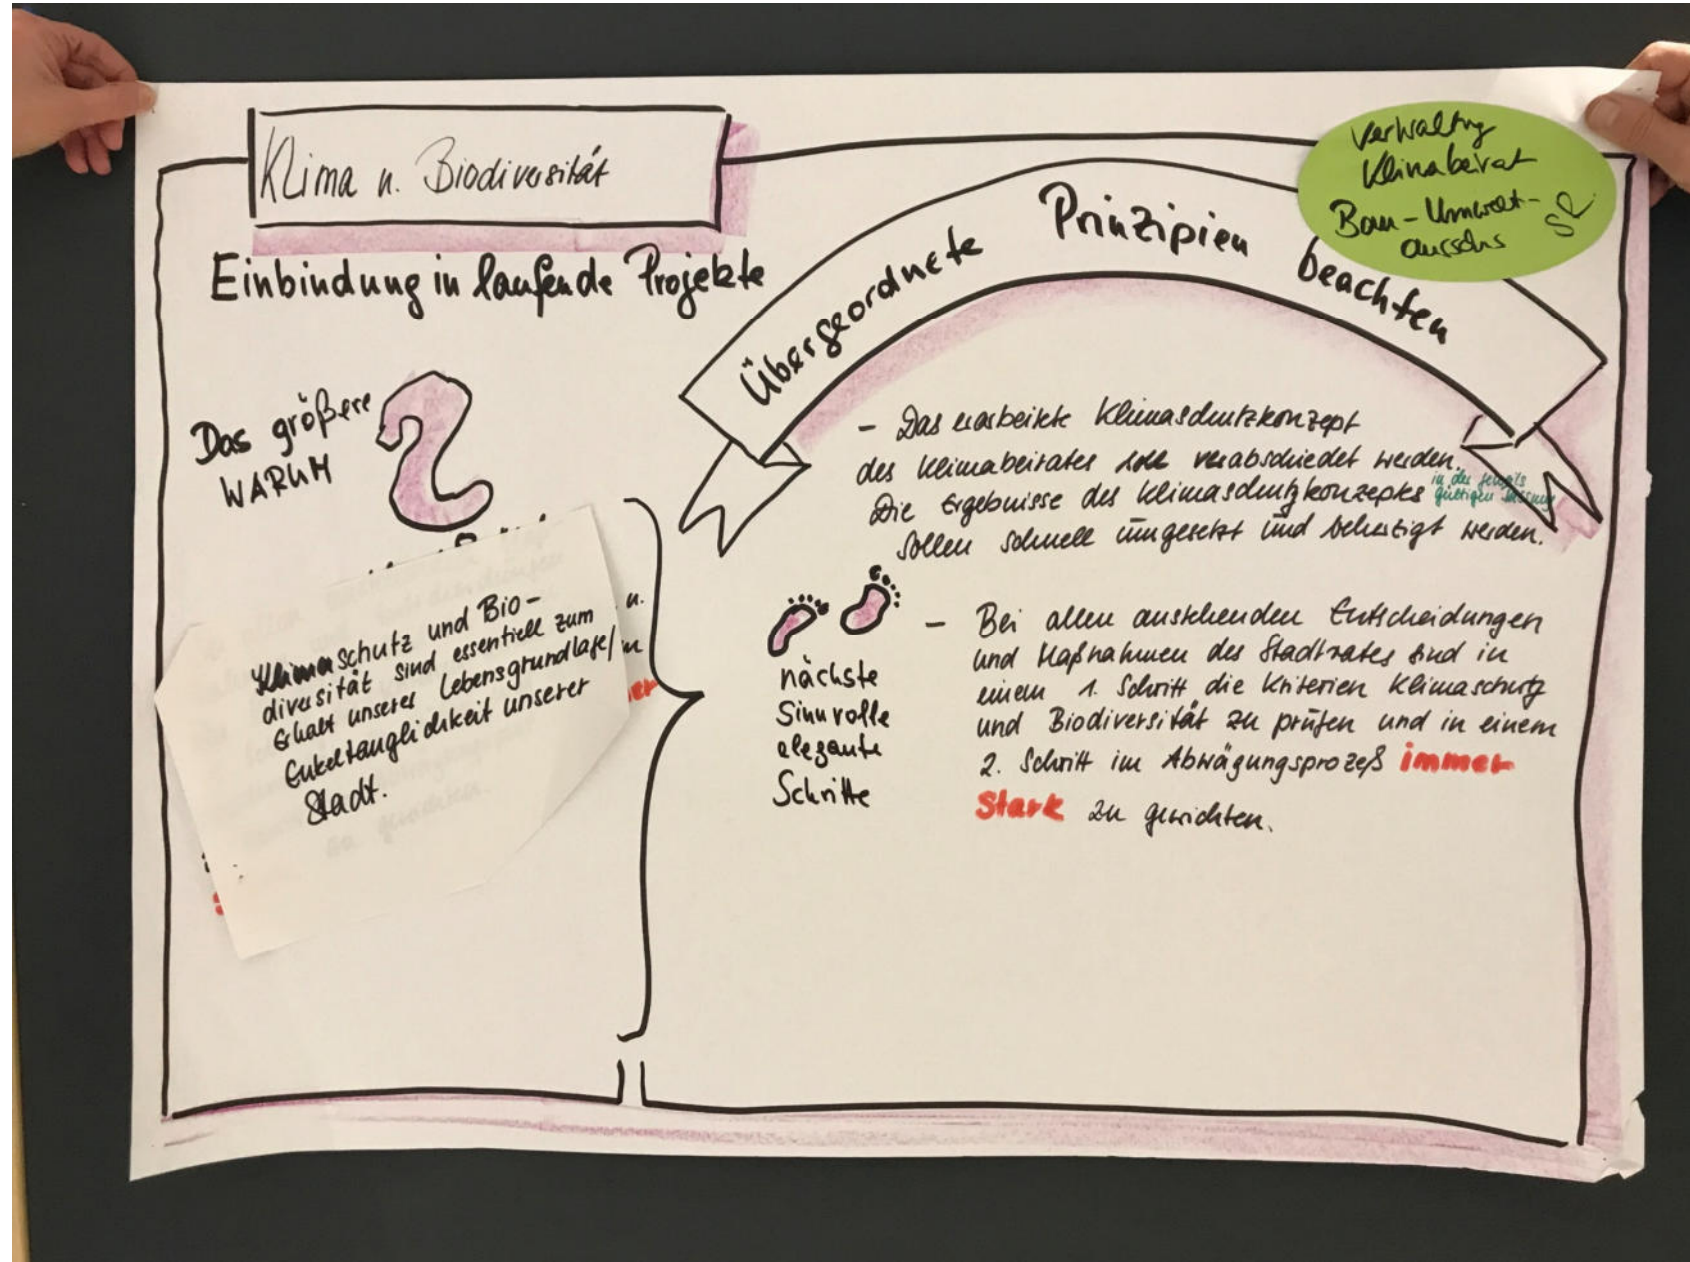 Klima u. Biodiversität
Einbindung in laufende Projekte
Übergeordnete Prinzipien beachten
Verwaltung
Klimabeirat
Bau-Umwelt-
SR
Das größere
WARUM
Klimaschutz und Bio-
diversität sind essentiell zum
Erhalt unserer Lebensgrundlage/
Enkeltauglichkeit unserer
Stadt.
u.
- Das erarbeitete Klimaschutzkonzept
des Klimabeirates soll verabschiedet werden.
Die Ergebnisse des Klimaschutzkonzeptes
in der jeweils
gültigen Fassung
sollen schnell umgesetzt und beherzigt werden.
nächste
Sinnvolle
elegante
Schritte
- Bei allen anstehenden Entscheidungen
und Maßnahmen des Stadtrates sind in
einem 1. Schritt die Kriterien Klimaschutz
und Biodiversität zu prüfen und in einem
2. Schritt im Abwägungsprozeß immer
stark zu gewichten.